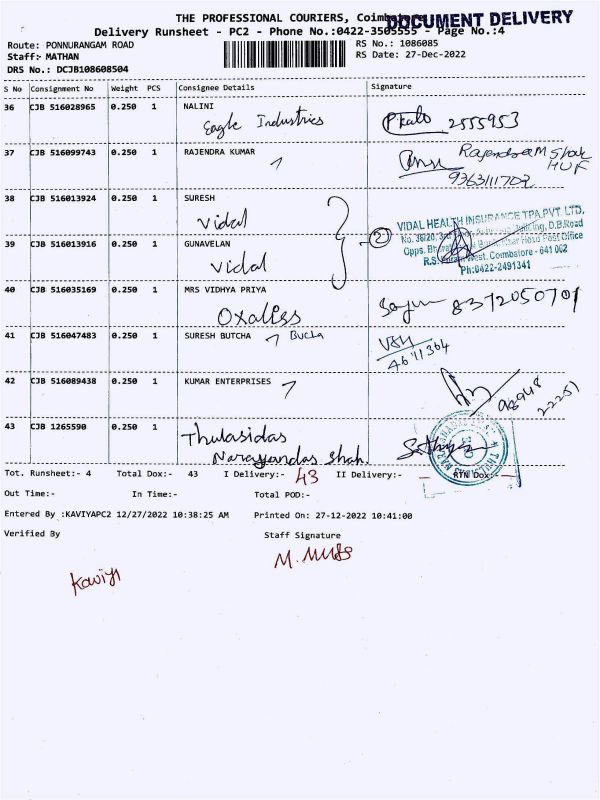 THE PROFESSIONAL COURIERS, Coimbatore
DOCUMENT DELIVERY
Delivery Runsheet - PC2 - Phone No.:0422-3505555 - Page No.:4
Route: PONNURANGAM ROAD
RS No.: 1086085
Staff:- MATHAN
RS Date: 27-Dec-2022
DRS No.: DCJB108608504
S No Consignment No Weight PCS Consignee Details Signature
36 CJB 516028965 0.250 1 NALINI
Eagle Industries 2555953
37 CJB 516099743 0.250 1 RAJENDRA KUMAR
Rajendra M Shah
HUF
9363111702
38 CJB 516013924 0.250 1 SURESH
Vidal
VIDAL HEALTH INSURANCE TPA PVT. LTD.
39 CJB 516013916 0.250 1 GUNAVELAN
Vidal
West, Coimbatore - 641 002
Ph:0422-2491341
40 CJB 516035169 0.250 1 MRS VIDHYA PRIYA
Oxaliss 8372050701
41 CJB 516047483 0.250 1 SURESH BUTCHA Bucha
4611364
42 CJB 516089438 0.250 1 KUMAR ENTERPRISES
98948
22251
43 CJB 1265590 0.250 1
Thulasidas
Narayandas Shah.
Sathya
Tot. Runsheet:- 4 Total Dox:- 43 I Delivery:- 43 II Delivery:- RTN Dox:-
Out Time:- In Time:- Total POD:-
Entered By :KAVIYAPC2 12/27/2022 10:38:25 AM Printed On: 27-12-2022 10:41:00
Verified By Staff Signature
Kaviya